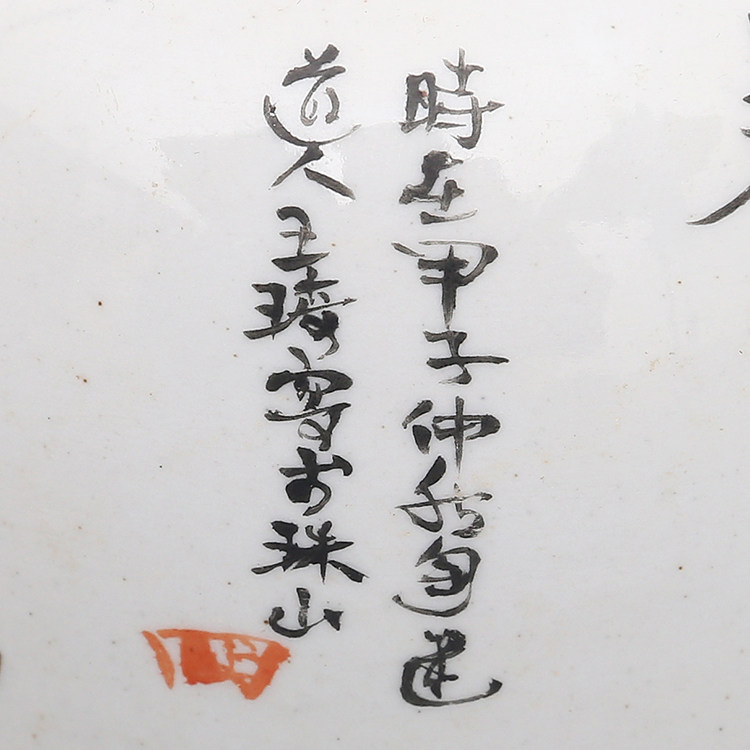 時在甲子仲秋匋迷
道人王琦寫於珠山